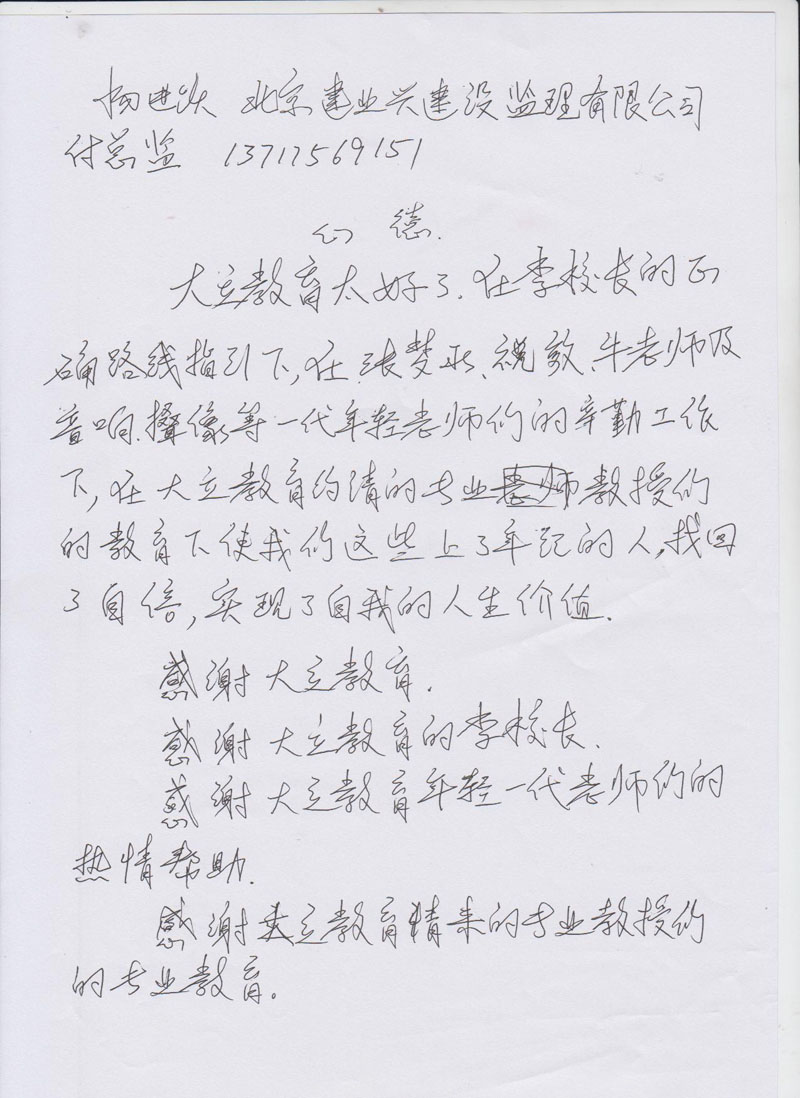 杨进沃 北京建业兴建设监理有限公司
付总监 13717569151
心 德.
大立教育太好了.在李校长的正
确路线指引下,在张梦政、魏敩、牛老师及
音响.摄像等一代年轻老师们的辛勤工作
下,在大立教育约请的专业教授们
的教育下使我们这些上了年记的人,找回
了自信,实现了自我的人生价值.
感谢大立教育.
感谢大立教育的李校长.
感谢大立教育年轻一代老师们的
热情帮助.
感谢大立教育精来的专业教授们
的专业教育。